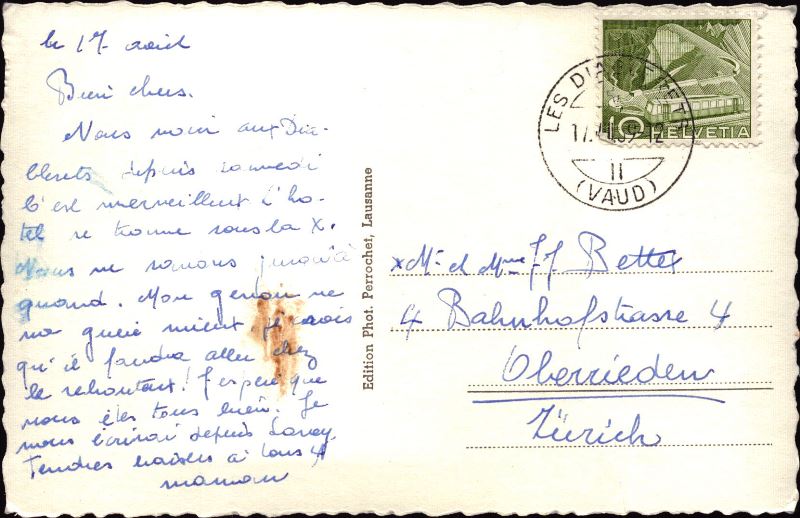 le 17 avril
Bien chers.
Nous voici aux Dia-
blerets depuis samedi
C'est merveilleux L'hô-
tel se trouve sous la X.
Nous ne savons jusqu'à
quand. Mon genou ne
va guère mieux je crois
qu'il faudra aller chez
le rebouteux! J'espère que
vous êtes tous bien. Je
vous écrirai depuis
Tendres baisers à tous 4
maman
Edition Phot. Perrochet, Lausanne
LES DIABLERETS
17. 59-12
II
(VAUD)
10 HELVETIA
x Mr et Mme JJ Bettex
4 Bahnhofstrasse 4
Oberrieden
Zürich